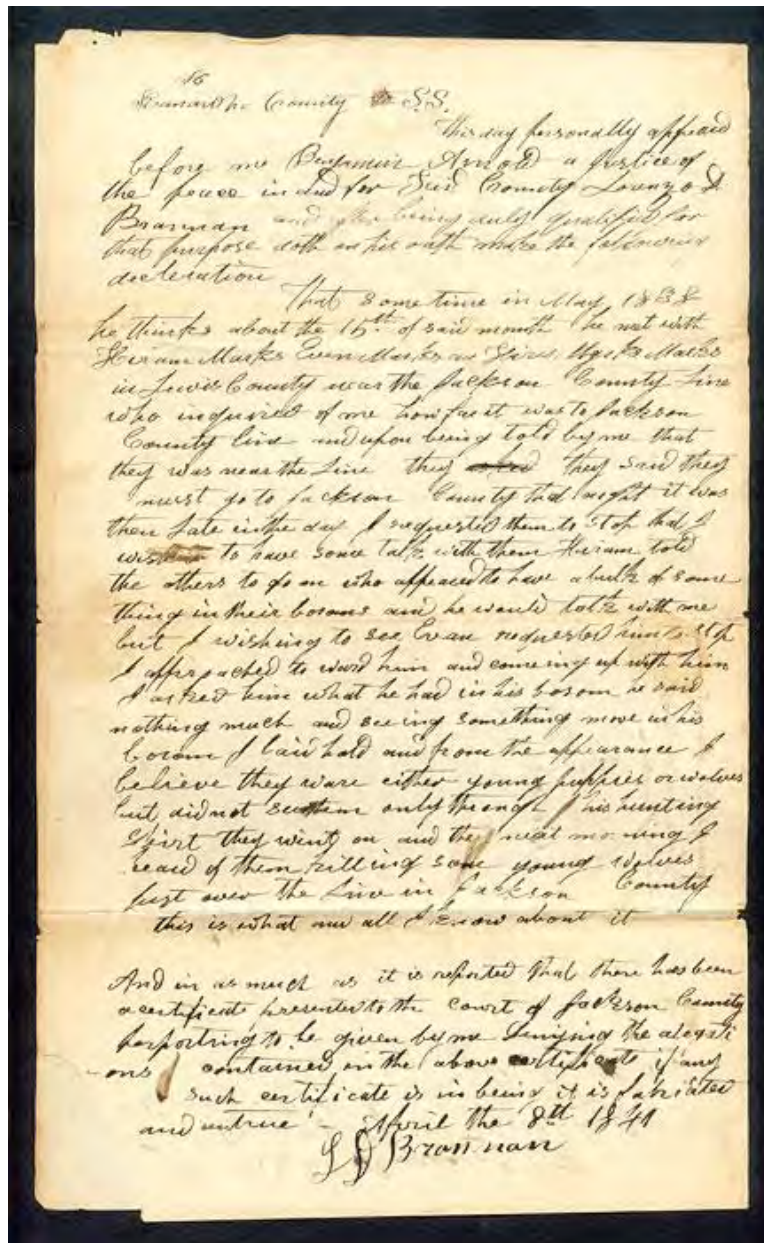 16
Kanawha County SS.
This day personally appeard
before me Benjamin Arnold a Justice of
the peace in and for Said County Lorenzo D
Brannan and after being duly qualified for
that purpose doth on his oath make the following
decleration
That some time in May 1838
he thinks about the 15th of said month he met with
Hiram Marks Even Marks Marks
in Lewis County the Jackson County Line
who inquired of me how far it was to Jackson
County line and upon being told by me that
they was near the Line they they said they
must go to Jackson County that night it was
then Late in the day I requested them to stop that I
to have some talk with them Hiram told
the others to go on who appeared to have a bulk of some
thing in their bosoms and he would talk with me
but I wishing to see Evan requested him to stop
I approached to ward him and comeing up with him
I asked him what he had in his bosom he said
nothing much and seeing something move in his
bosom I laid hold and from the appearance I
believe they ware either young puppies or wolves
but did not see them only through his hunting
Shirt they went on and the next morning I
heard of them killing some young wolves
Just over the Line in Jackson County
this is what and all I know about it
And in as much as it is reported that there has been
a certificate presented to the court of Jackson County
porporting to be given by me Denying the alegati
-ons contained in the above certificate if any
such certificate is in being it is fabriated
and untrue - April the 8th 1841
L D Brannan